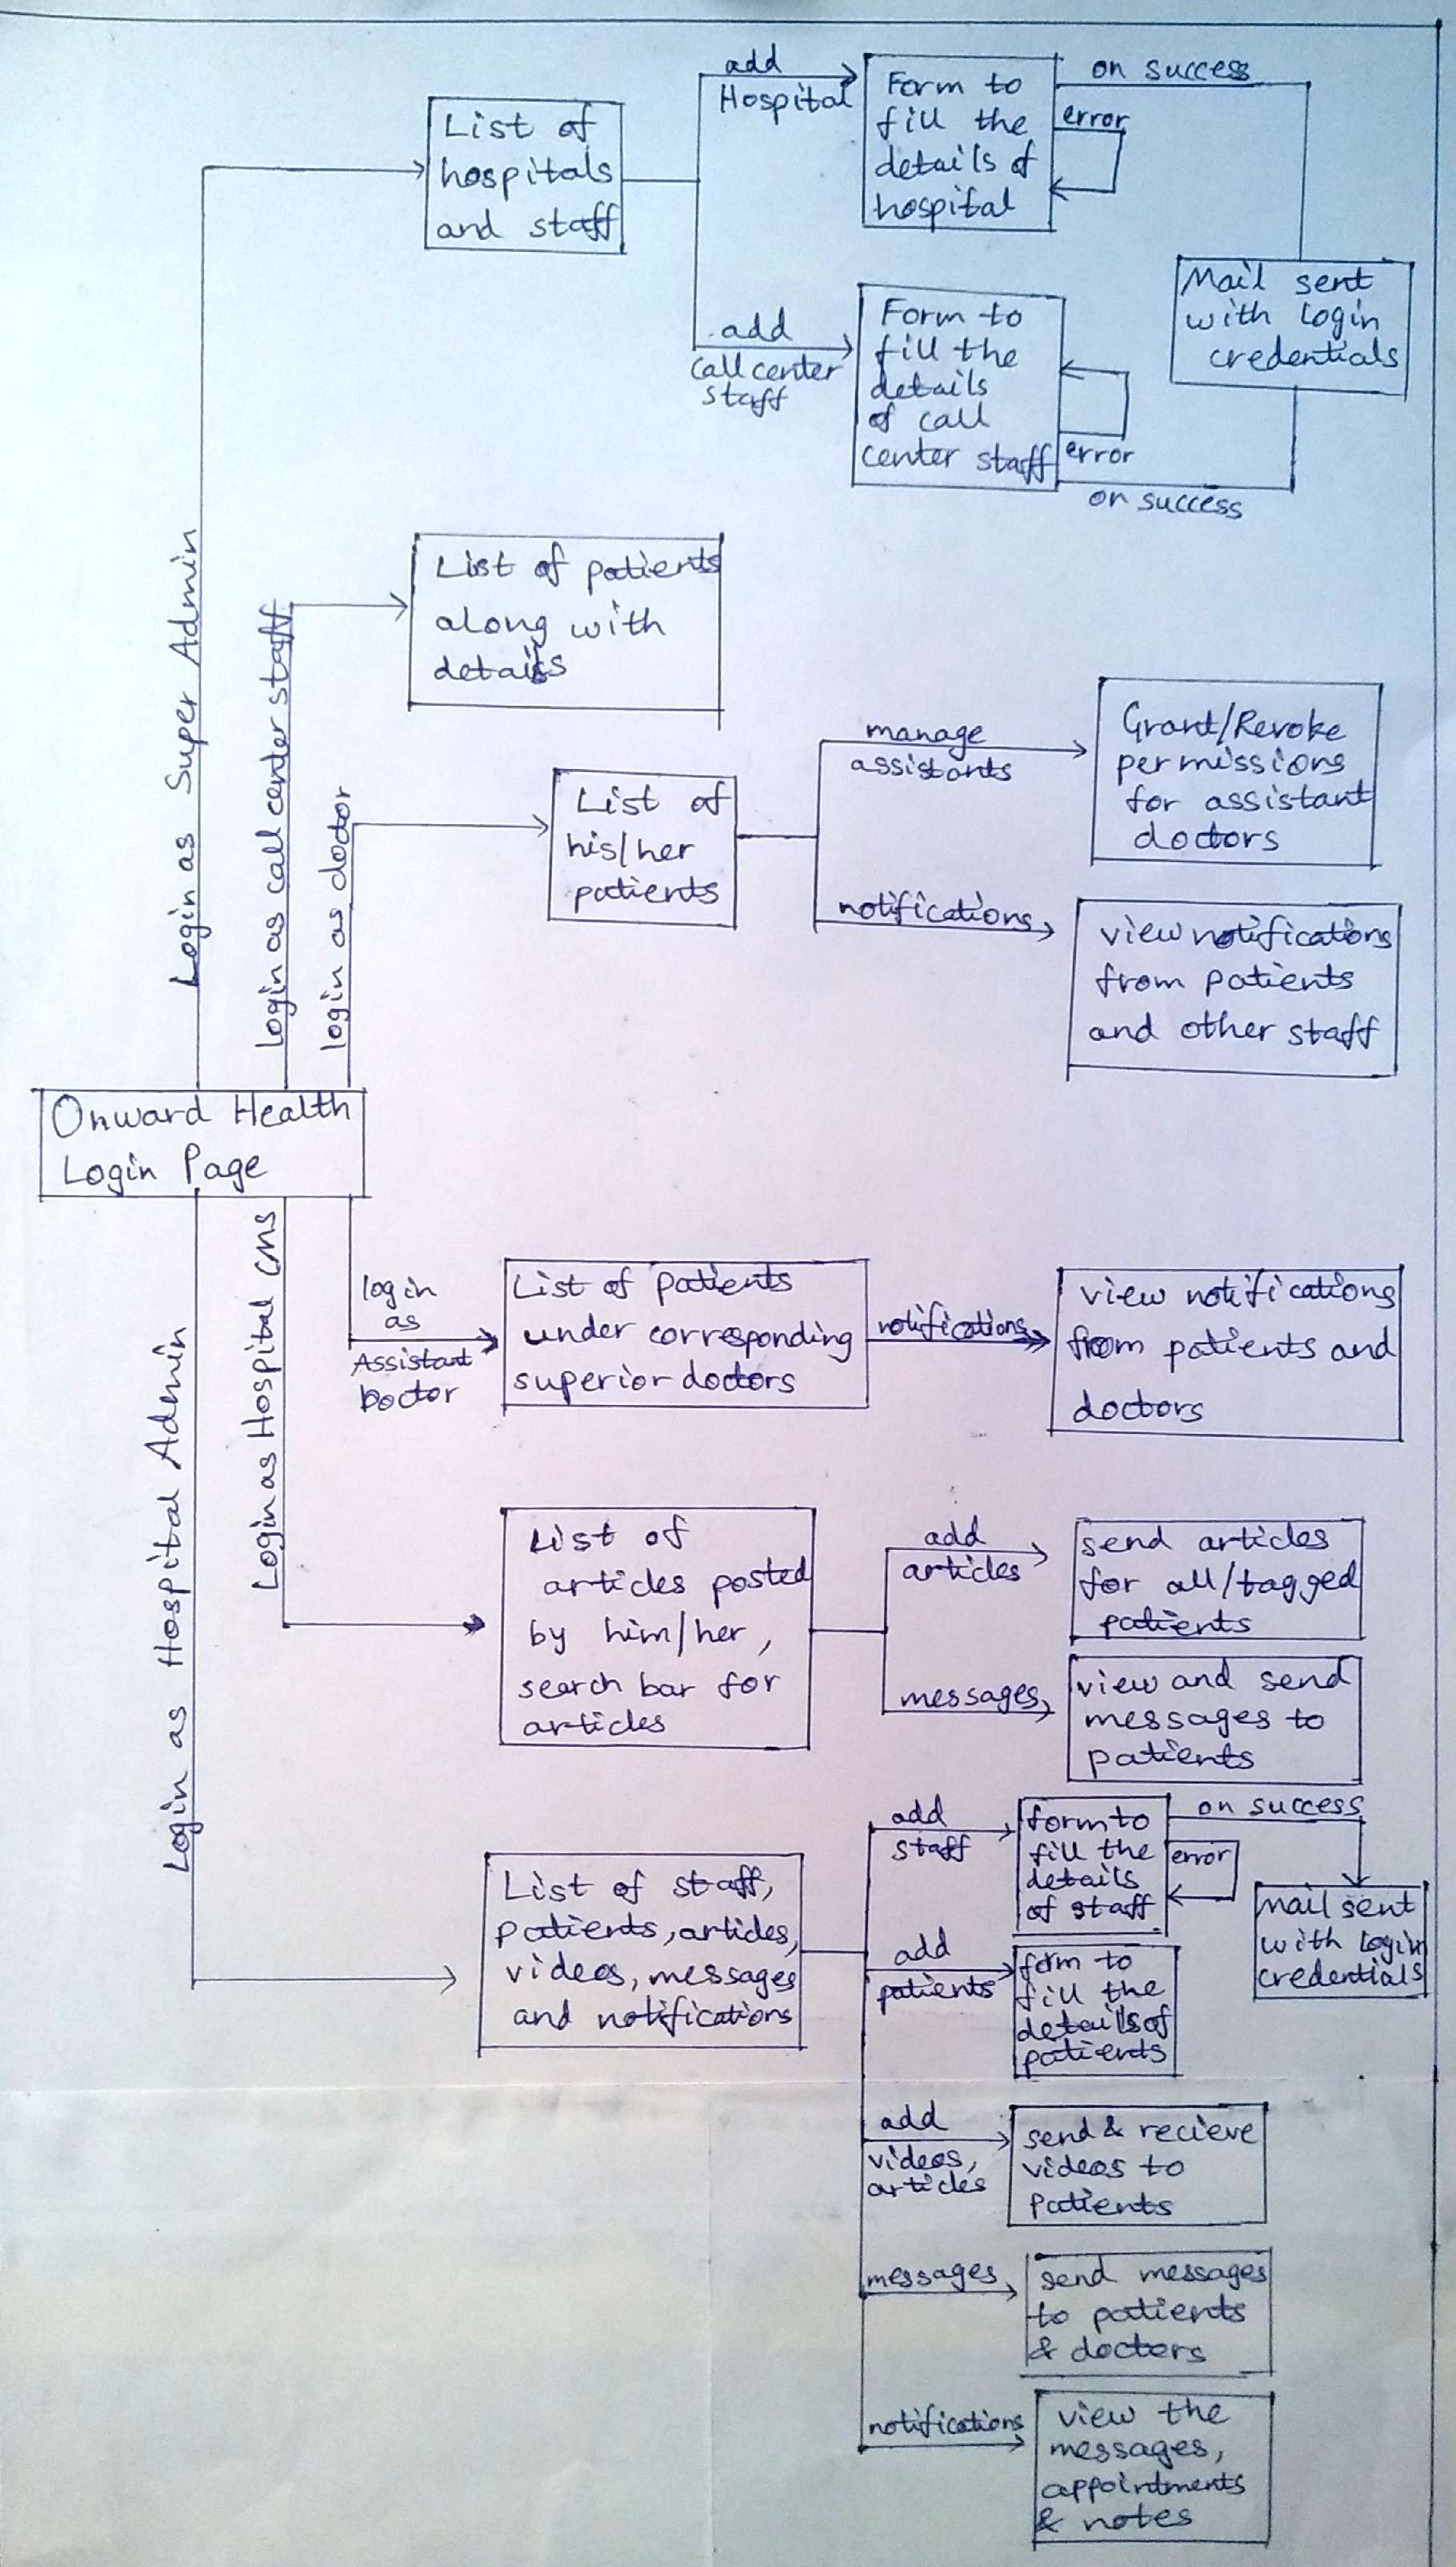 add
Hospital
Form to
fill the
details of
hospital
on success
error
List of
hospitals
and staff
Mail sent
with login
credentials
add
call center
staff
Form to
fill the
details
of call
center staff
error
on success
Login as Super Admin
Login as call center staff
login as doctor
List of patients
along with
details
List of
his/her
patients
manage
assistants
Grant/Revoke
permissions
for assistant
doctors
notifications
view notifications
from patients
and other staff
Onward Health
Login Page
Login as Hospital Admin
Login as Hospital CMS
login
as
Assistant
Doctor
List of patients
under corresponding
superior doctors
notifications
view notifications
from patients and
doctors
List of
articles posted
by him/her,
search bar for
articles
add
articles
send articles
for all/tagged
patients
messages
view and send
messages to
patients
List of staff,
patients, articles,
videos, messages
and notifications
add
staff
form to
fill the
details
of staff
on success
error
mail sent
with login
credentials
add
patients
form to
fill the
details of
patients
add
videos,
articles
send & recieve
videos to
patients
messages
send messages
to patients
& doctors
notifications
view the
messages,
appointments
& notes